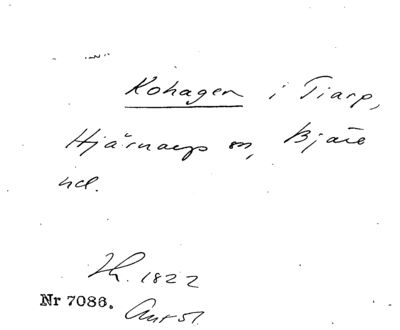 Kohagen i Tiarp,
Hjärnarps sn, Bjäre
hd.
Th. 1822
Nr 7086.